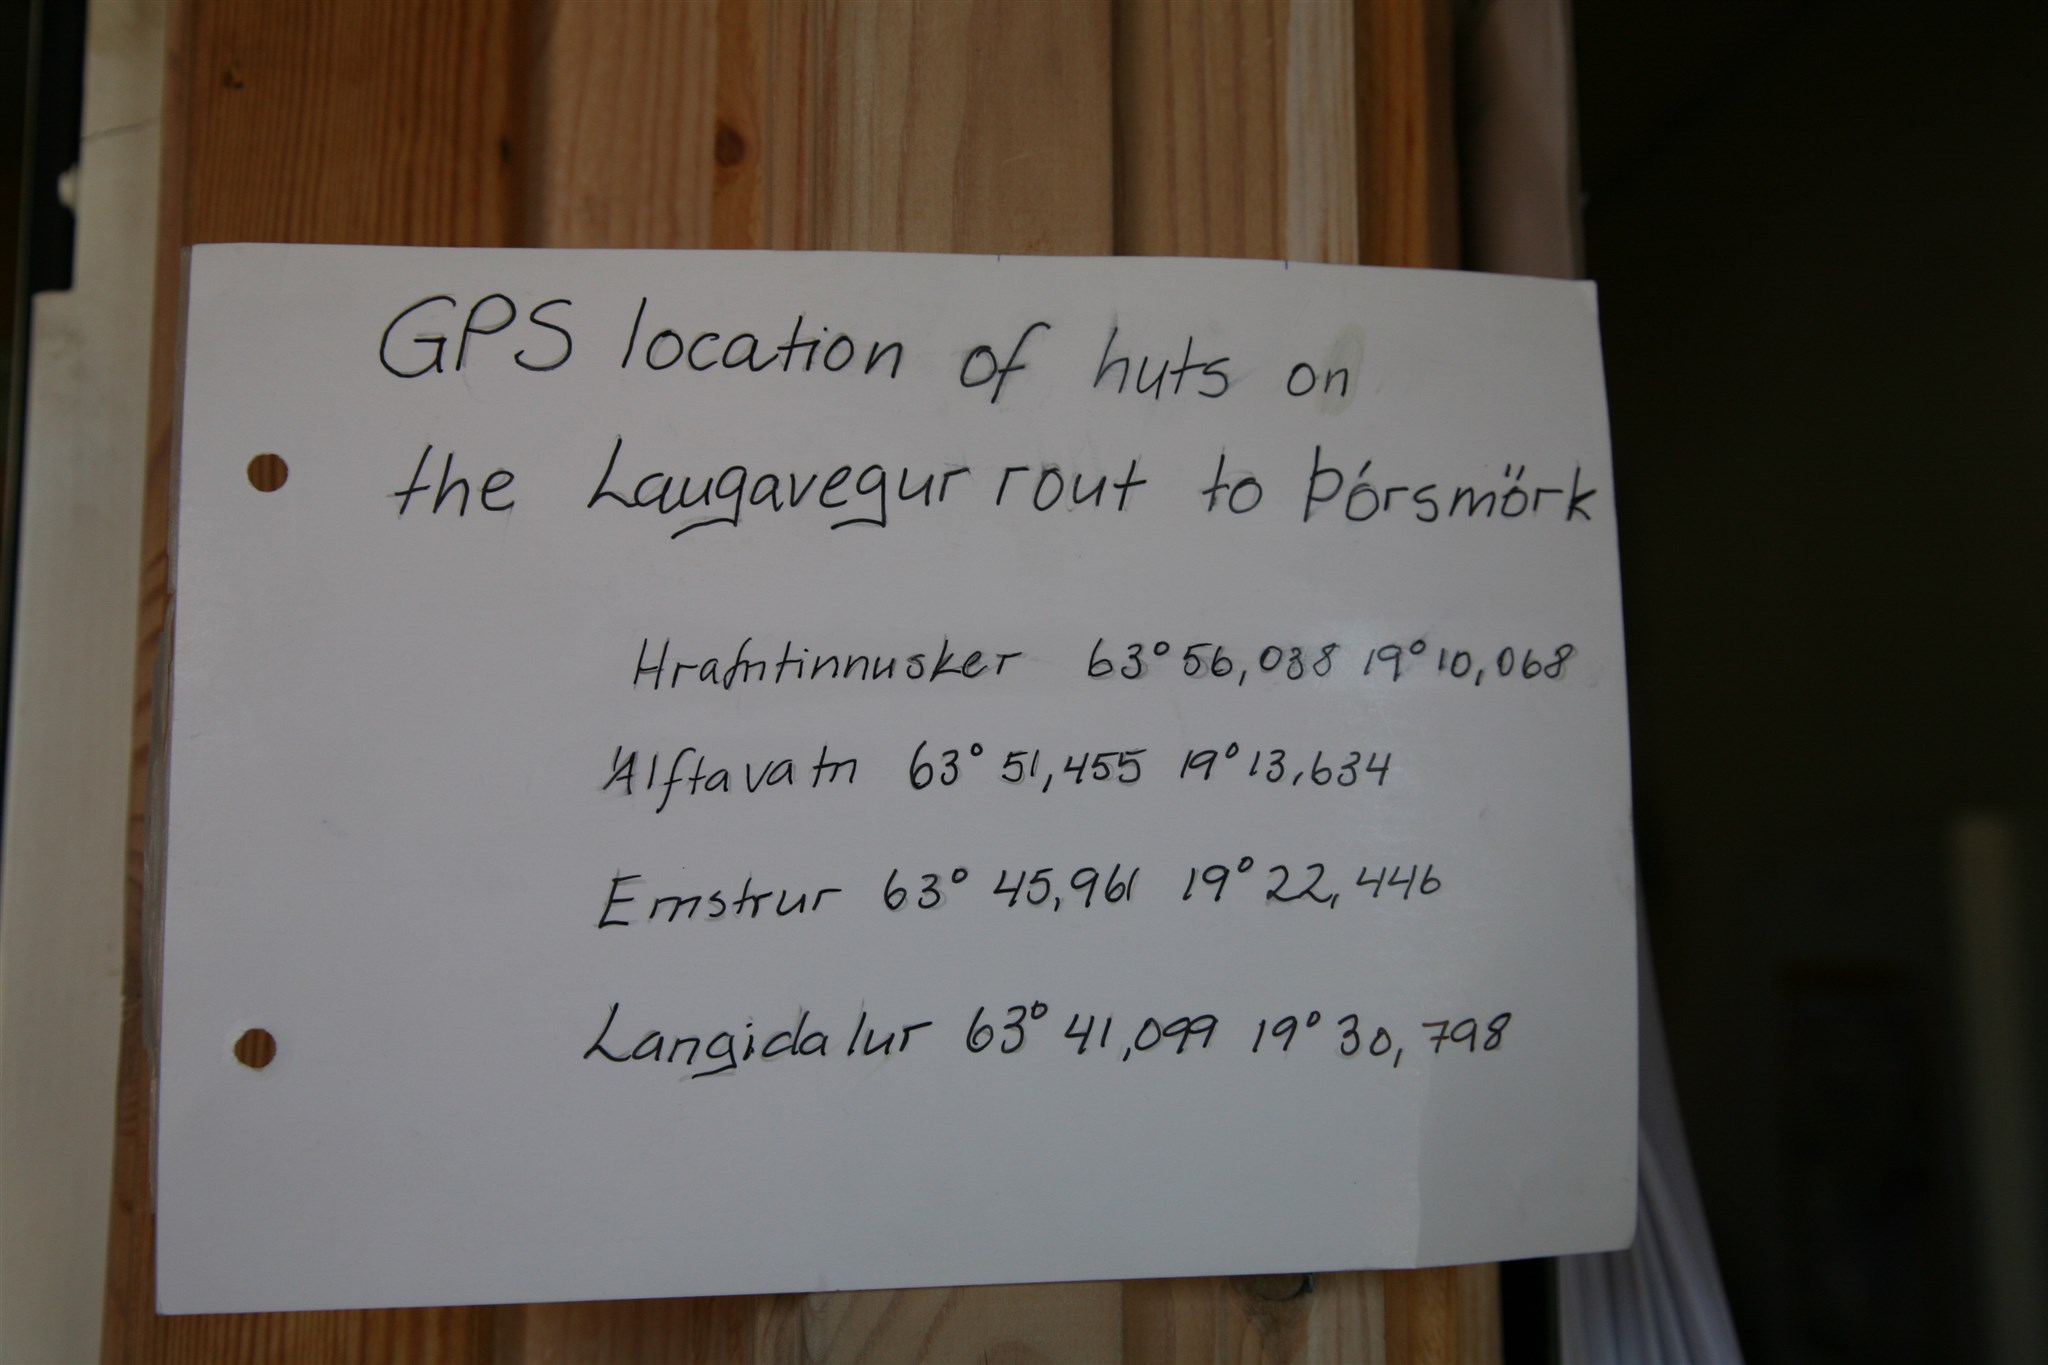 GPS location of huts on
the Laugavegur rout to Þórsmörk
Hrafntinnusker 63° 56,038 19° 10,068
Álftavatn 63° 51,455 19° 13,634
Emstrur 63° 45,961 19° 22,446
Langidalur 63° 41,099 19° 30,798